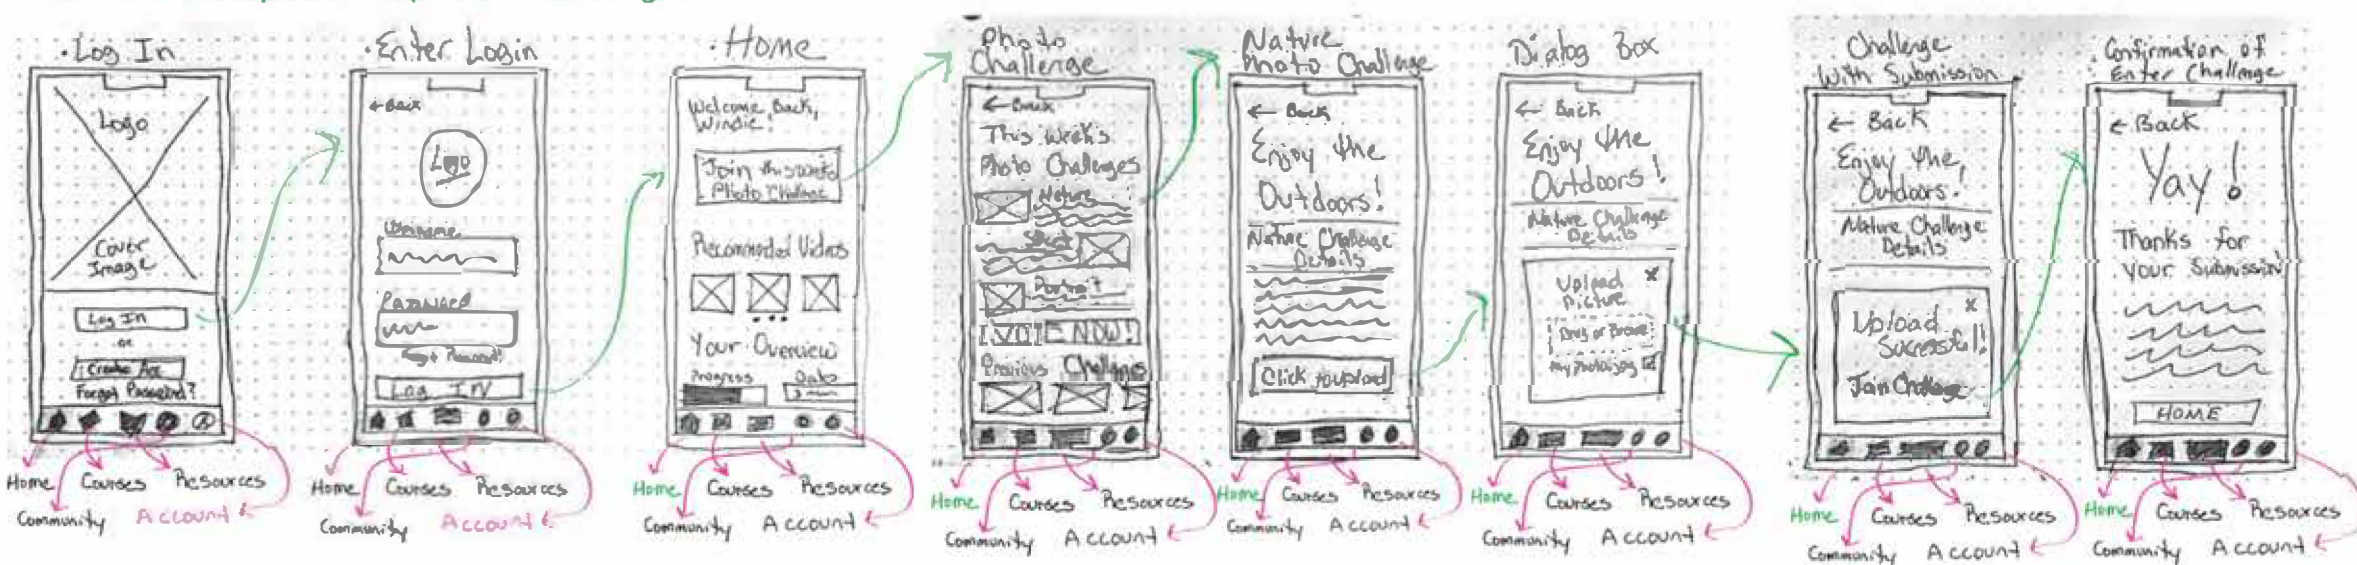 Log In
Logo
Cover
Image
Log In
or
Create Acc
Forgot Password?
Home
Courses
Resources
Community
Account
Enter Login
← Back
Logo
Username
Password
Log IN
Home
Courses
Resources
Community
Account
Home
Welcome Back,
Windie!
Join this week's
Photo Challenge
Recommended Videos
Your Overview
Progress
Home
Courses
Resources
Community
Account
Photo
Challenge
← Back
This week's
Photo Challenges
Nature
Portrait
NOW!
Previous Challenges
Home
Courses
Resources
Community
Account
Nature
Photo Challenge
← Back
Enjoy the
Outdoors!
Nature Challenge
Details
Click to upload
Home
Courses
Resources
Community
Account
Dialog Box
← Back
Enjoy the
Outdoors!
Nature Challenge
Details
Upload
Picture
x
Drag or Browse
Home
Courses
Resources
Community
Account
Challenge
With Submission
← Back
Enjoy the
Outdoors.
Nature Challenge
Details
x
Upload
Successful!
Join Challenge
Home
Courses
Resources
Community
Account
Confirmation of
Enter Challenge
← Back
Yay!
Thanks for
your Submission
HOME
Home
Courses
Resources
Community
Account